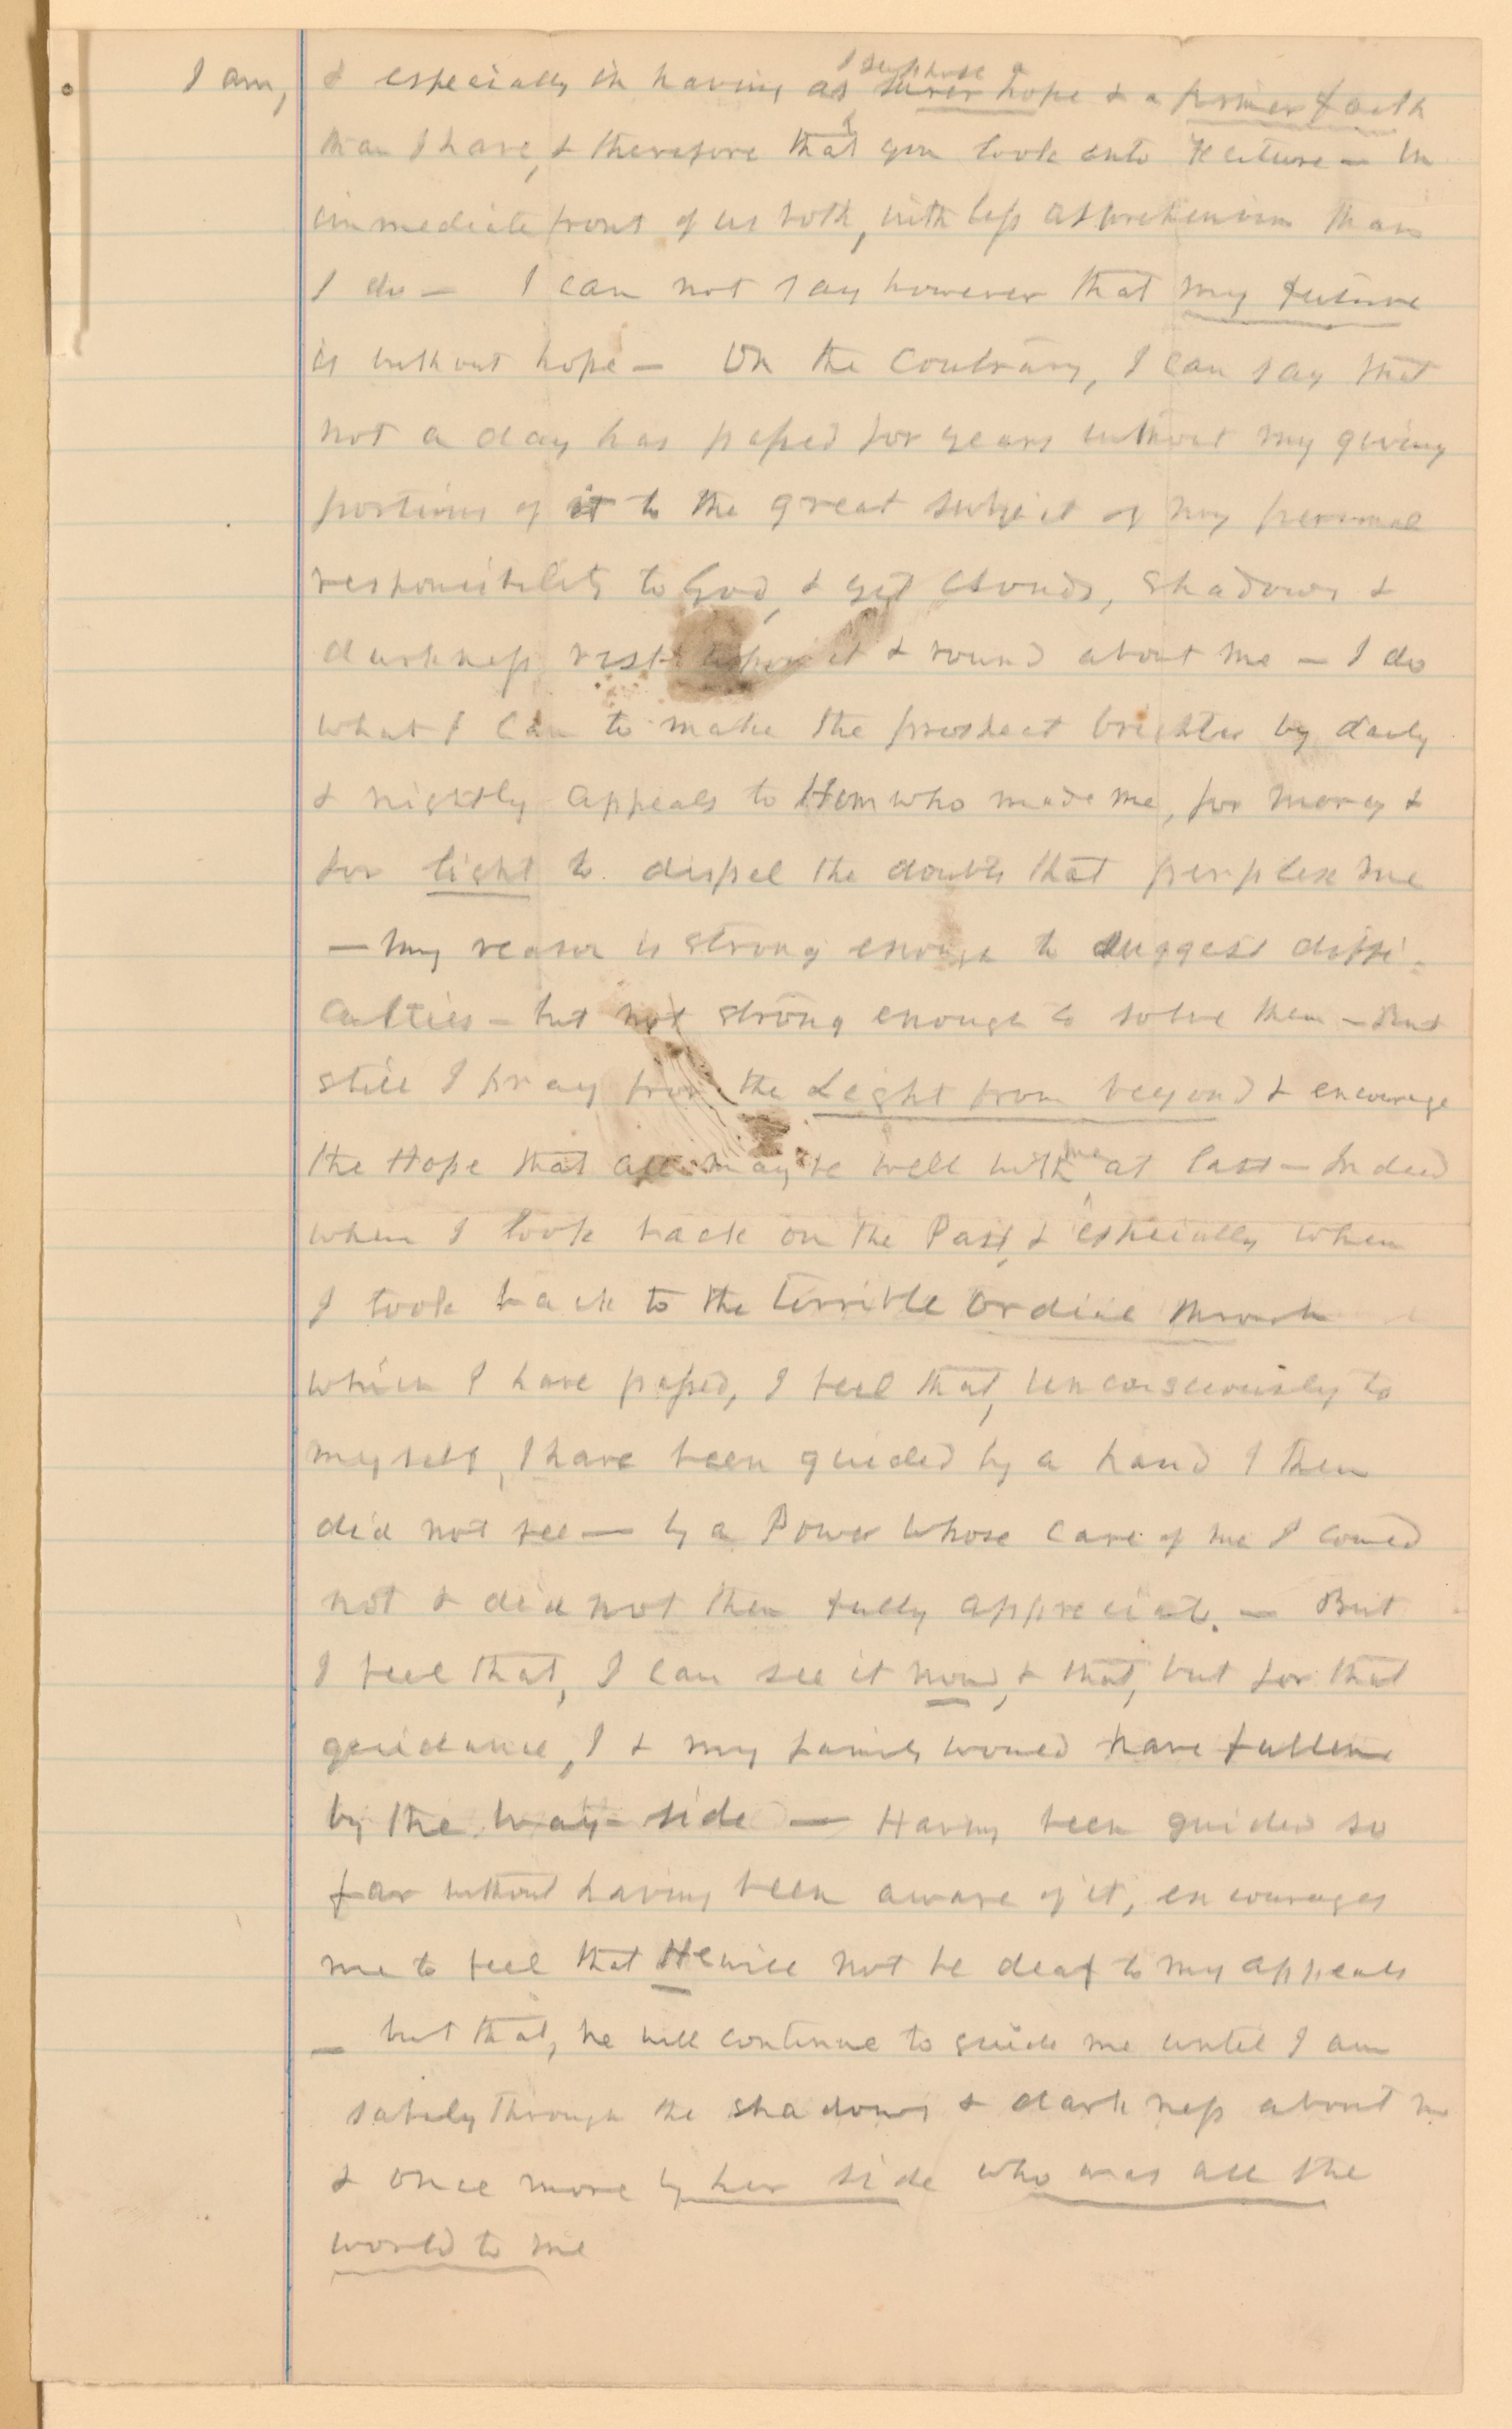 I am, & especially in having as I suppose a surer hope & a firmer faith
than I have, & therefore that you look into future – in
immediate front of us both, with less apprehension than
I do – I can not say however that my future
is without hope – On the Contrary, I can say that
not a day has passed for years without my giving
portions of it to the great subject of my personal
responsibility to God, & yet clouds, shadows &
darkness rest upon it & round about me – I do
what I can to make the prospect brighter by daily
& nightly appeals to Him who made me, for mercy &
for light to dispel the doubts that perplex me
– My reason is strong enough to suggest diffi-
culties – but not strong enough to solve them – But
still I pray for the Light from beyond & encourage
the Hope that all may be well with me at last – Indeed
when I look back on the Past, & especially when
I look back to the terrible ordeal through
which I have passed, I feel that, unconsciously to
myself, I have been guided by a hand I then
did not see – by a Power whose care of me I could
not & did not then fully appreciate. – But
I feel that, I can see it now, & that, but for that
guidance, I & my family would have fallen
by the way-side – Having been guided so
far without having been aware of it, encourages
me to feel that He will not be deaf to my appeals
– but that, he will continue to guide me until I am
safely through the shadows & darkness about me
& once more by her side who was all the
world to me